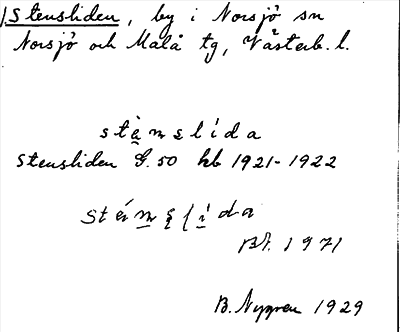 Stensliden, by i Norsjö sn
Norsjö och Malå tg, Västerb. l.
stè̠mslída
Stensliden G.50 hb 1921-1922
stéi m̠ s̠ l í̠ da
Bt. 1971
B. Nygren 1929